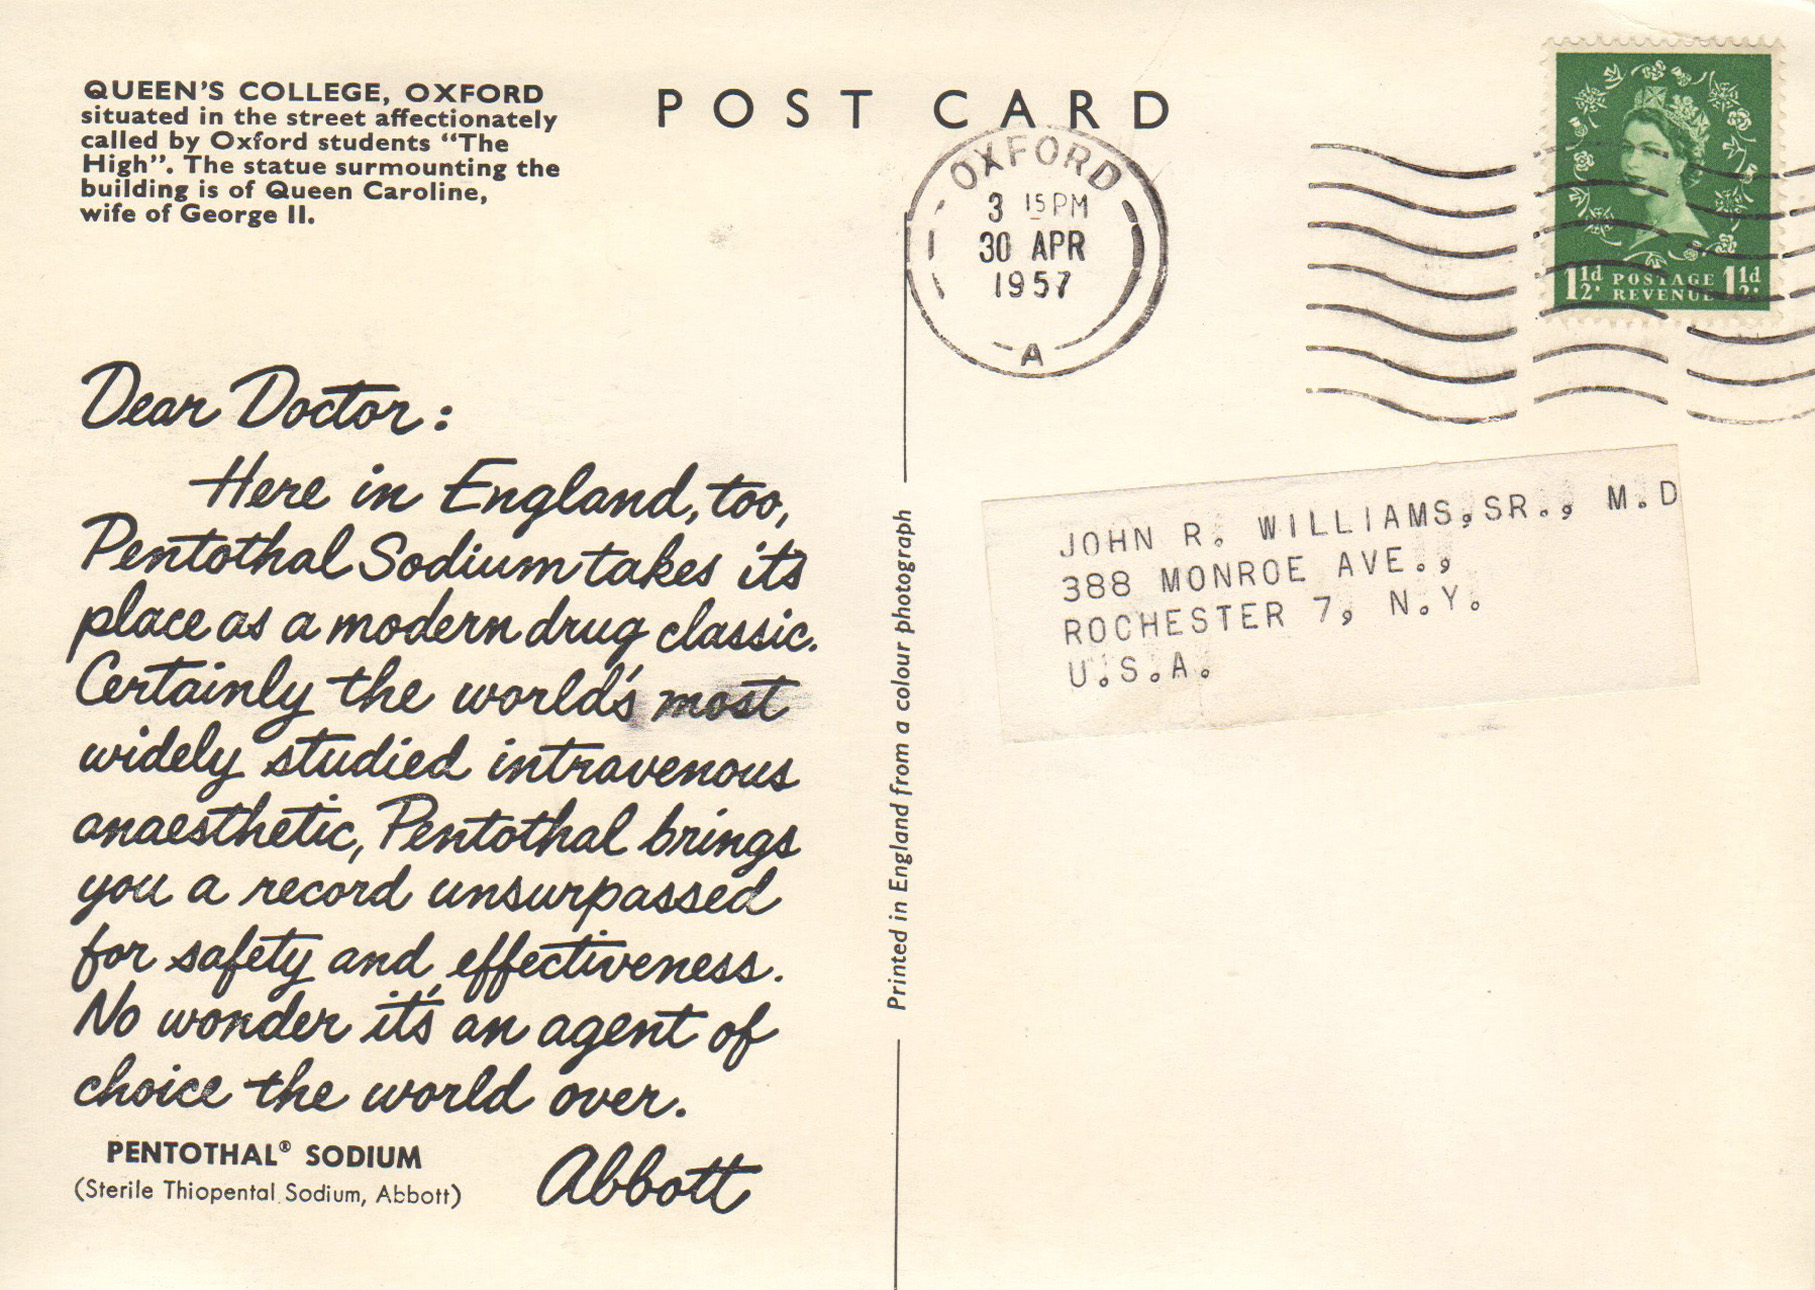 QUEEN'S COLLEGE, OXFORD
situated in the street affectionately
called by Oxford students "The
High". The statue surmounting the
building is of Queen Caroline,
wife of George II.
POST CARD
OXFORD
3 15 PM
30 APR
1957
A
1½d POSTAGE 1½d
REVENUE
Dear Doctor:
Here in England, too,
Pentothal Sodium takes its
place as a modern drug classic.
Certainly the world's most
widely studied intravenous
anaesthetic, Pentothal brings
you a record unsurpassed
for safety and effectiveness.
No wonder it's an agent of
choice the world over.
PENTOTHAL® SODIUM
(Sterile Thiopental Sodium, Abbott)
Abbott
Printed in England from a colour photograph
JOHN R. WILLIAMS,SR., M.D
388 MONROE AVE.,
ROCHESTER 7, N.Y.
U.S.A.